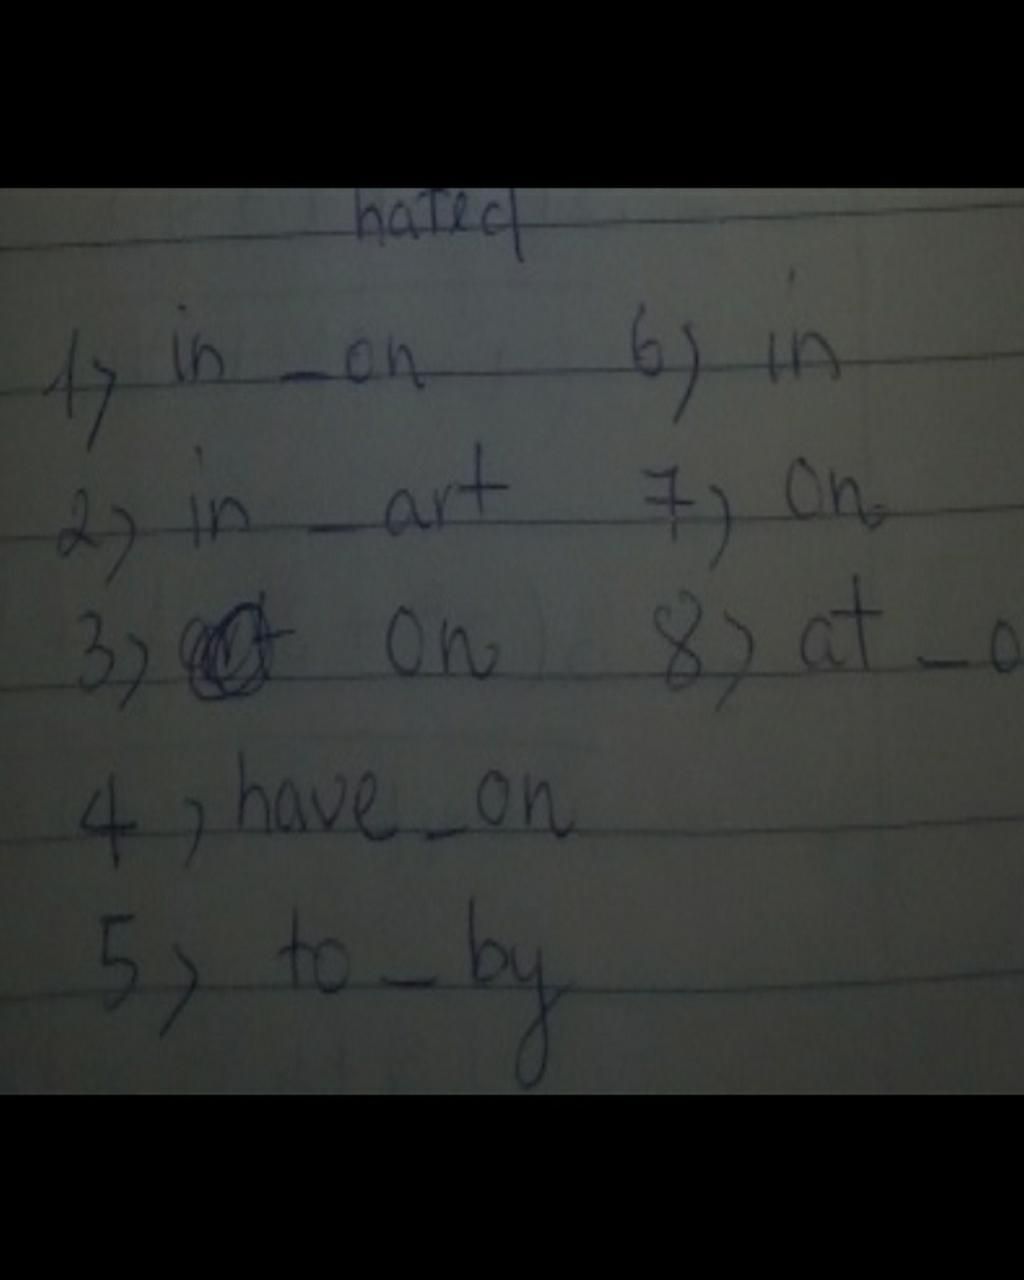 hated
1) in - on 6) in
2) in - art 7) on
3) on 8) at - o
4) have - on
5) to - by